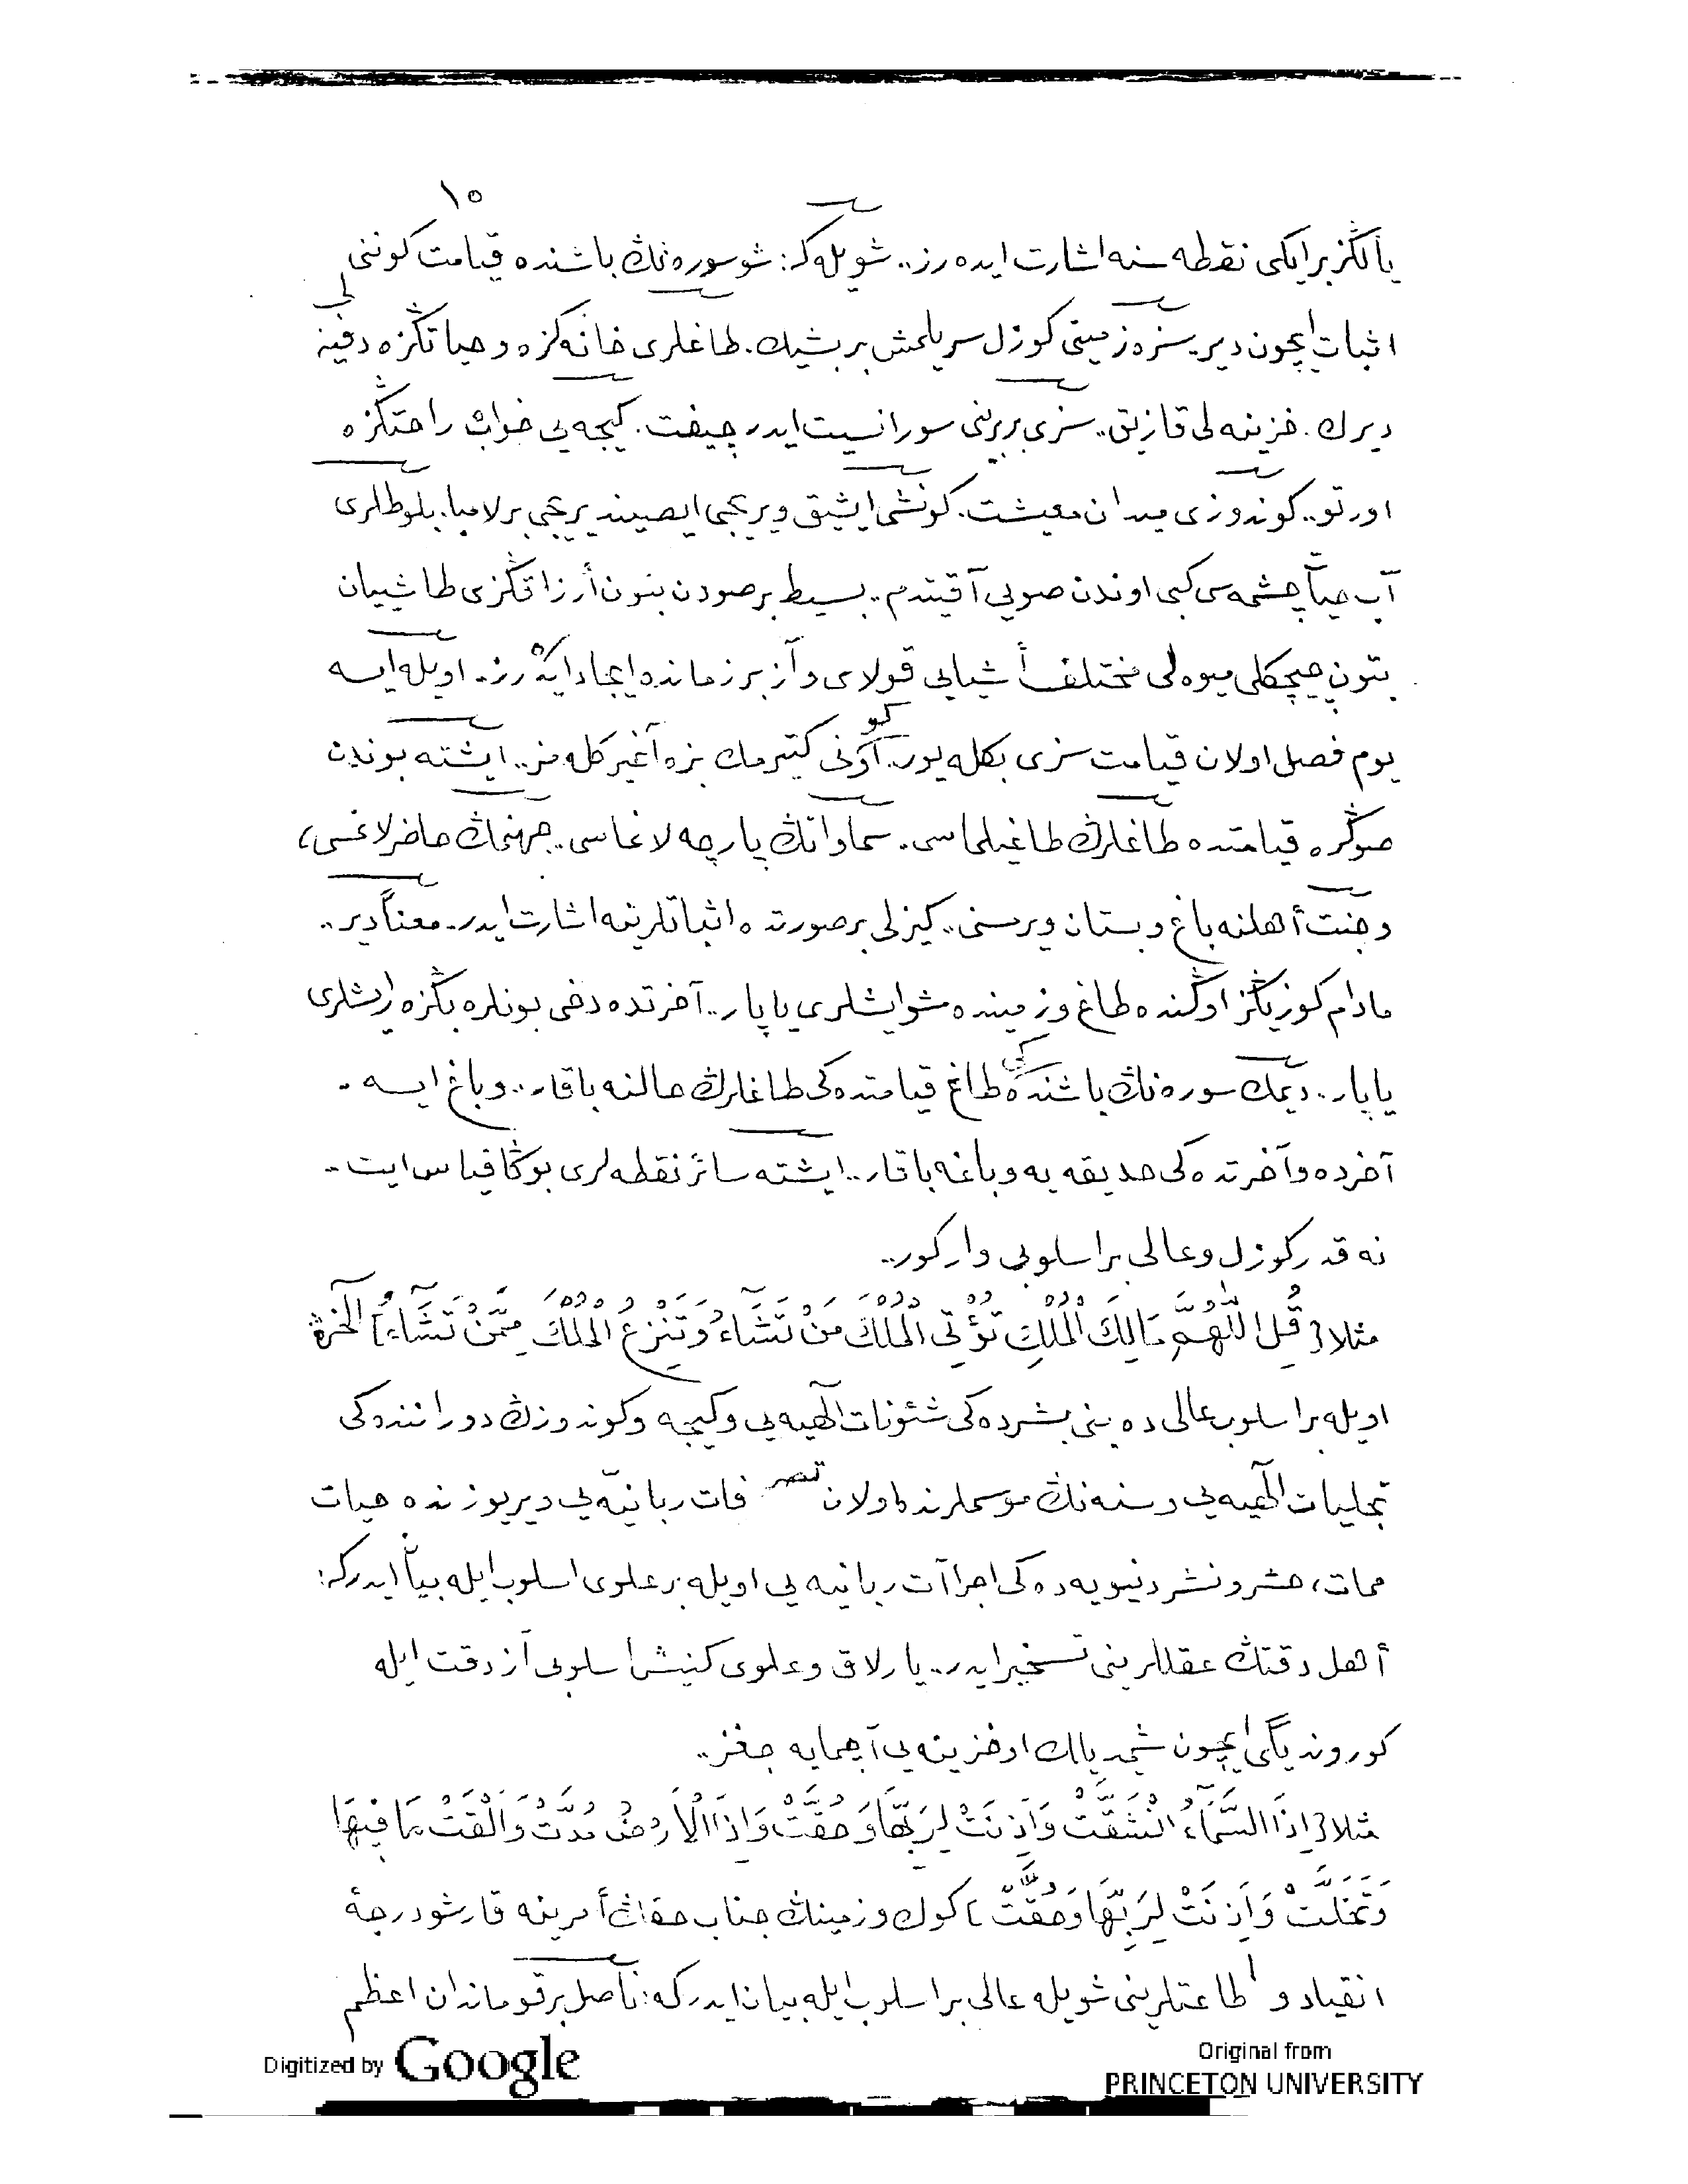 ١٥
يالڭز بر ايكى نقطه سنه اشارت ايده رز.. شويله كه: شو سوره نڭ باشنده قيامت كوننى
اثبات ايچون دير. سزه زمينى كوزل سريلمش بر بشيك. طاغلرى خانه كزه و حياتڭزه دفينه لى
ديرك. خزينه لى قازيق.. سزى بربرينى سور انسيت ايدر چيفت. كيجه يى خواب راحتڭزه
اورتو.. كوندوزى ميدان معيشت. كونشى ايشيق ويريجى ايصينديريجى بر لامبا. بلوطلرى
آب حيات چشمه سى كبى اوندن صويى آقيتدم.. بسيط بر صودن بتون أرزاقڭزى طاشييان
بتون چيچكلى ميوه لى مختلف أشيايى قولاى و آز بر زمانده ايجاد ايده رز. اويله ايسه
يوم فصل اولان قيامت سزى بكله يور. او كونى كتيرمك بزه آغير كله مز.. ايشته بوندن
صوڭره قيامتده طاغلرڭ طاغيلماسى. سماواتڭ پارچه لانماسى.. جهنمڭ حاضرلانمسى،
و جنت أهلنه باغ و بستان ويرمسنى.. كيزلى بر صورتده اثباتلرينه اشارت ايدر. معناً دير..
مادام كوزيڭز اوڭنده طاغ و زمينده شو ايشلرى ياپار.. آخرتده دخى بونلره بڭزر ايشلرى
ياپار.. ديمك سوره نڭ باشنده كى طاغ قيامتده كى طاغلرڭ حالنه باقار.. و باغ ايسه.
آخرده و آخرتده كى حديقه يه و باغه باقار.. ايشته سائر نقطه لرى بوڭا قياس ايت..
نه قدر كوزل و عالى بر اسلوبى وار كور..
مثلا { قُلِ اللّٰهُمَّ مَالِكَ الْمُلْكِ تُؤْتِى الْمُلْكَ مَنْ تَشَٓاءُ وَتَنْزِعُ الْمُلْكَ مِمَّنْ تَشَٓاءُ } الخره
اويله بر اسلوب عالى ده بنى بشرده كى شئونات الٓهيه يى و كيجه و كوندوزڭ دوراننده كى
تجليات الٓهيه يى و سنه نڭ موسملرنده اولان تصرفات ربانيّه يى و يريوزنده حيات
ممات، حشر و نشر دنيويه ده كى اجراآت ربانيه يى اويله بر علوى اسلوب ايله بيان ايدركه:
أهل دقتڭ عقللرينى تسخير ايدر.. پارلاق و علوى كنيش أسلوبى آز دقت ايله
كوروندياڭى ايچون شمديلك او خزينه يى آچمايه جغز..
مثلا { اِذَا السَّمَٓاءُ انْشَقَّتْ وَاَذِنَتْ لِرَبِّهَا وَحُقَّتْ وَاِذَا الْاَرْضُ مُدَّتْ وَاَلْقَتْ مَا فِيهَا
وَتَخَلَّتْ وَاَذِنَتْ لِرَبِّهَا وَحُقَّتْ } كوك و زمينڭ جناب حقڭ أمرينه قارشو درجهٔ
انقياد و اطاعتلرينى شويله عالى بر اسلوب ايله بيان ايدركه: ناصل بر قوماندان اعظم
Digitized by Google
Original from
PRINCETON UNIVERSITY